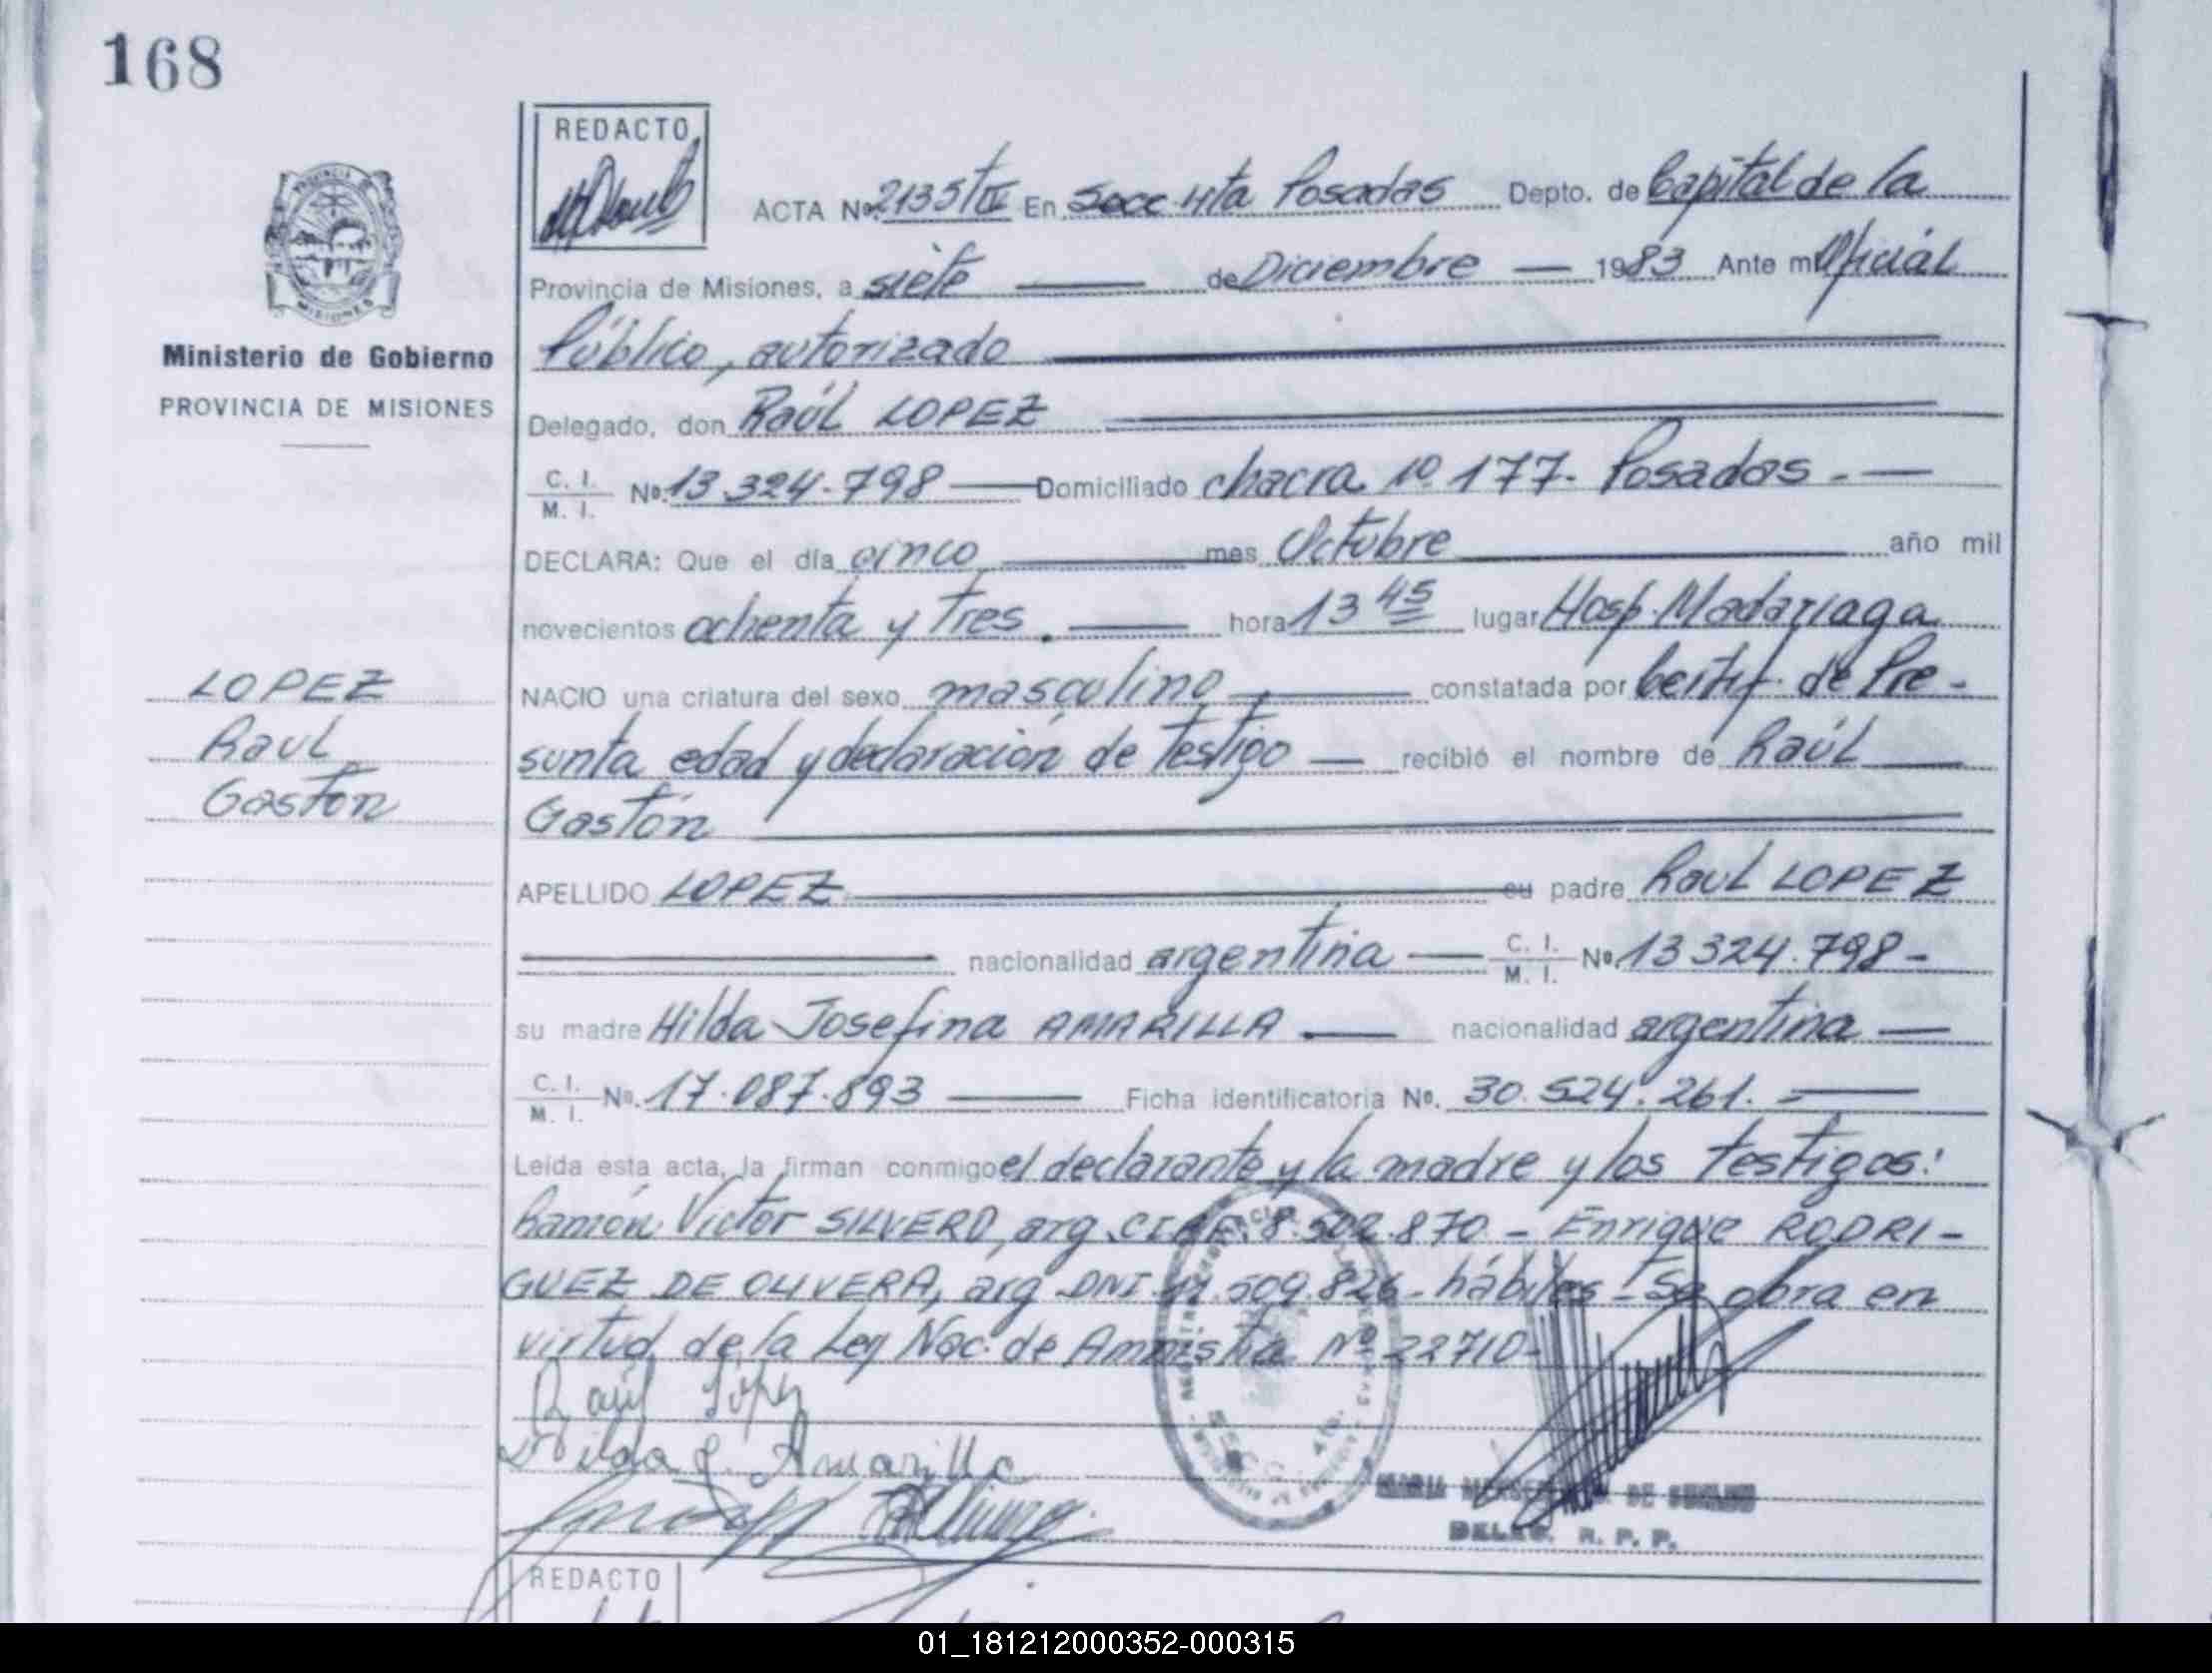 168
REDACTO
ACTA Nº 2135/IV En Secc 4ta Posadas Depto. de Capital de la
Provincia de Misiones, a siete de Diciembre 1983 Ante mi Oficial
Público, autorizado
Ministerio de Gobierno
PROVINCIA DE MISIONES
Delegado, don Raúl LOPEZ
C. I.
M. I. Nº 13.324.798 Domiciliado chacra Nº 177. Posadas.-
DECLARA: Que el día cinco mes Octubre año mil
novecientos ochenta y Tres. hora 13 45 lugar Hosp. Madariaga
NACIO una criatura del sexo masculino, constatada por Certif. de Pre-
sunta edad y declaración de Testigo recibió el nombre de Raúl
Gastón
LOPEZ
Raul
Gaston
APELLIDO LOPEZ su padre Raul LOPEZ
nacionalidad argentina C. I.
M. I. Nº 13 324.798-
su madre Hilda Josefina AMARILLA nacionalidad argentina
C. I.
M. I. Nº. 17.087.893 Ficha identificatoria Nº. 30.524.261.
Leída esta acta, la firman conmigo el declarante y la madre y los Testigos:
Ramón Victor SILVERO, arg. 8.502.870 - Enrique RODRI-
GUEZ DE OLIVERA, arg DNI 509.826- hábiles - Se obra en
virtud de la Ley Nac. de Amnistía Nº 22710-
Raúl López
Hilda J. Amarilla
MARIA DE
DELEG. R. P. P.
REDACTO
01_181212000352-000315